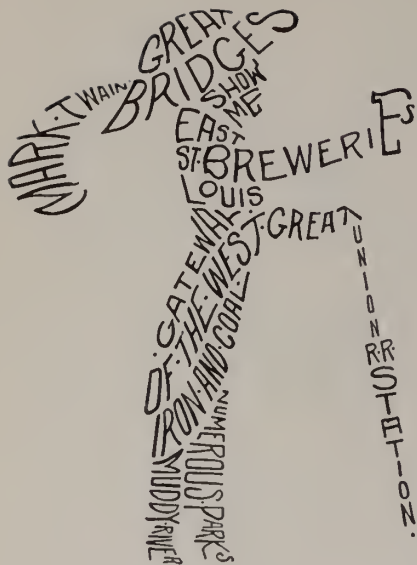 GREAT
BRIDGES
MARK·TWAIN·
SHOW
ME
EAST
ST·
LOUIS
BREWERIES
·GATEWAY·
OF·THE·WEST·
GREAT
UNION R·R· STATION·
IRON·AND·COAL·
NUMEROUS·PARK'S
MUDDY·RIVER